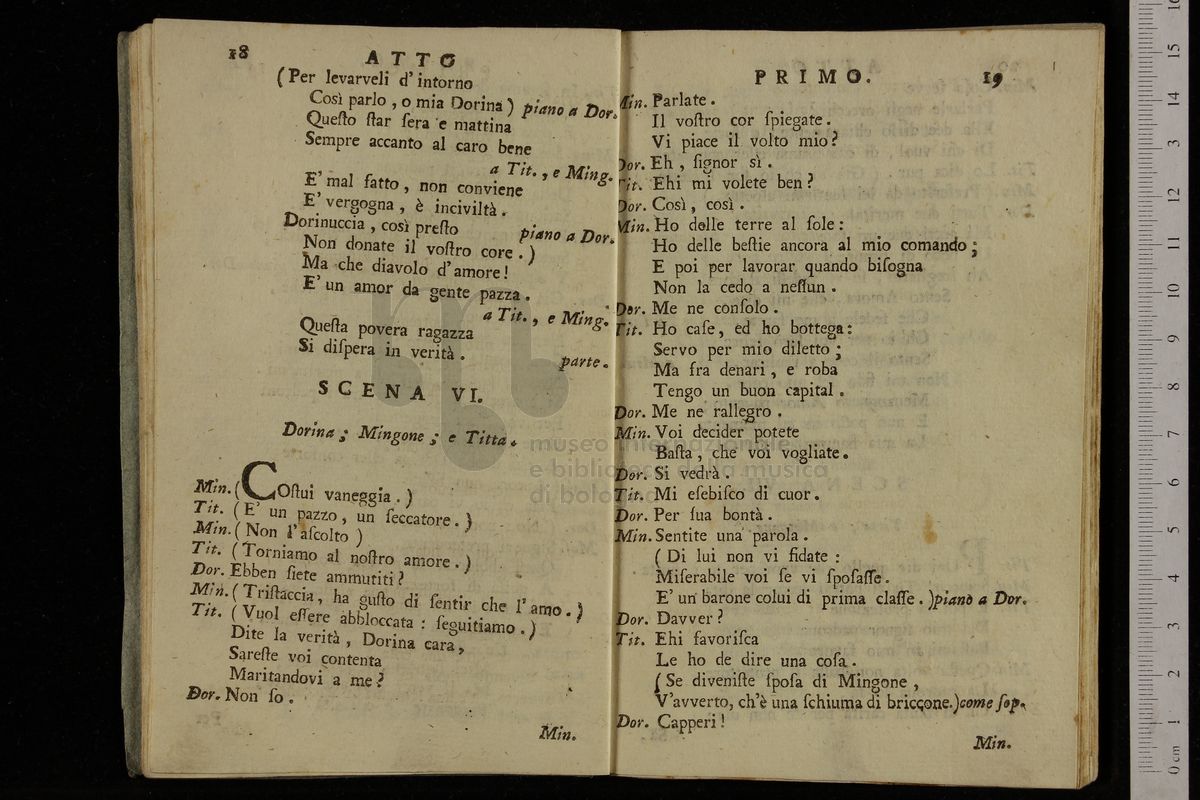 18
ATTO
(Per levarveli d'intorno
Così parlo, o mia Dorina) piano a Dor.
Questo star sera e mattina
Sempre accanto al caro bene
a Tit., e Ming.
E' mal fatto, non conviene
E' vergogna, è inciviltà.
Dorinuccia, così presto piano a Dor.
Non donate il vostro core.)
Ma che diavolo d'amore!
E' un amor da gente pazza.
a Tit., e Ming.
Questa povera ragazza
Si dispera in verità.
parte.
SCENA VI.
Dorina; Mingone; e Titta.
Min. (COstui vaneggia.)
Tit. (E' un pazzo, un seccatore.)
Min. (Non l'ascolto)
Tit. (Torniamo al nostro amore.)
Dor. Ebben siete ammutiti?
Min. (Tristaccia, ha gusto di sentir che l'amo.)
Tit. (Vuol essere abbloccata: seguitiamo.)
Dite la verità, Dorina cara,
Sareste voi contenta
Maritandovi a me?
Dor. Non so.
Min.
PRIMO.
19
Min. Parlate.
Il vostro cor spiegate.
Vi piace il volto mio?
Dor. Eh, signor sì.
Tit. Ehi mi volete ben?
Dor. Così, così.
Min. Ho delle terre al sole:
Ho delle bestie ancora al mio comando;
E poi per lavorar quando bisogna
Non la cedo a nessun.
Dor. Me ne consolo.
Tit. Ho case, ed ho bottega:
Servo per mio diletto;
Ma fra denari, e roba
Tengo un buon capital.
Dor. Me ne rallegro.
Min. Voi decider potete
Basta, che voi vogliate.
Dor. Si vedrà.
Tit. Mi esebisco di cuor.
Dor. Per sua bontà.
Min. Sentite una parola.
(Di lui non vi fidate:
Miserabile voi se vi sposasse.
E' un barone colui di prima classe.) piano a Dor.
Dor. Davver?
Tit. Ehi favorisca
Le ho de dire una cosa.
(Se deveniste sposa di Mingone,
V'avverto, ch'è una schiuma di briccone.) come sop.
Dor. Capperi!
Min.
museo internazionale
e biblioteca della musica
di bologna